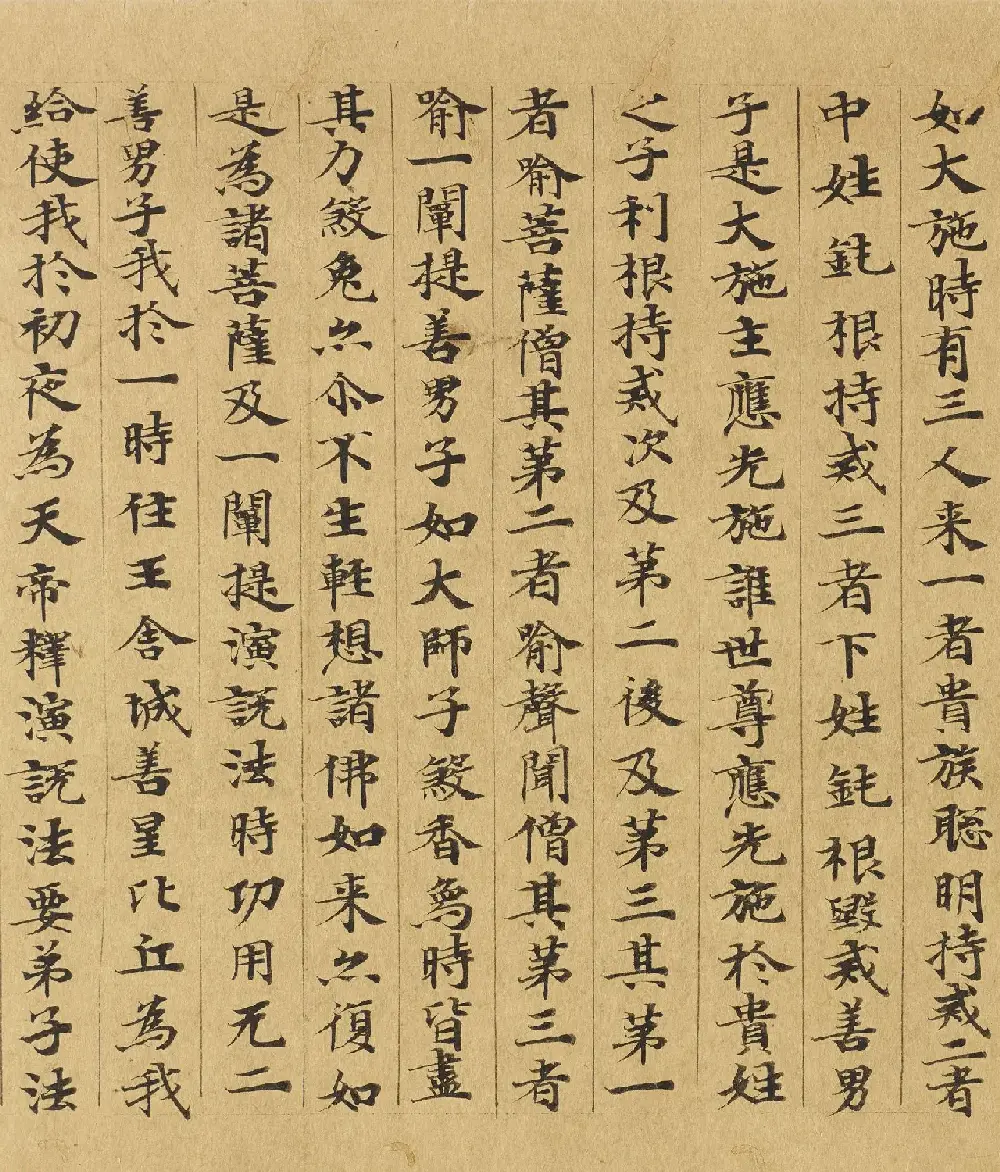 如大施時有三人来一者貴族聡明持戒二者
中姓鈍根持戒三者下姓鈍根毀戒善男
子是大施主應先施誰世尊應先施於貴姓
之子利根持戒次及第二後及第三其第一
者喻菩薩僧其第二者喻聲聞僧其第三者
喻一闡提善男子如大師子煞香鳥時皆盡
其力煞兔亦尒不生輕想諸佛如来亦復如
是為諸菩薩及一闡提演説法時功用无二
善男子我於一時住王舍城善星比丘為我
給使我於初夜為天帝釋演説法要弟子法